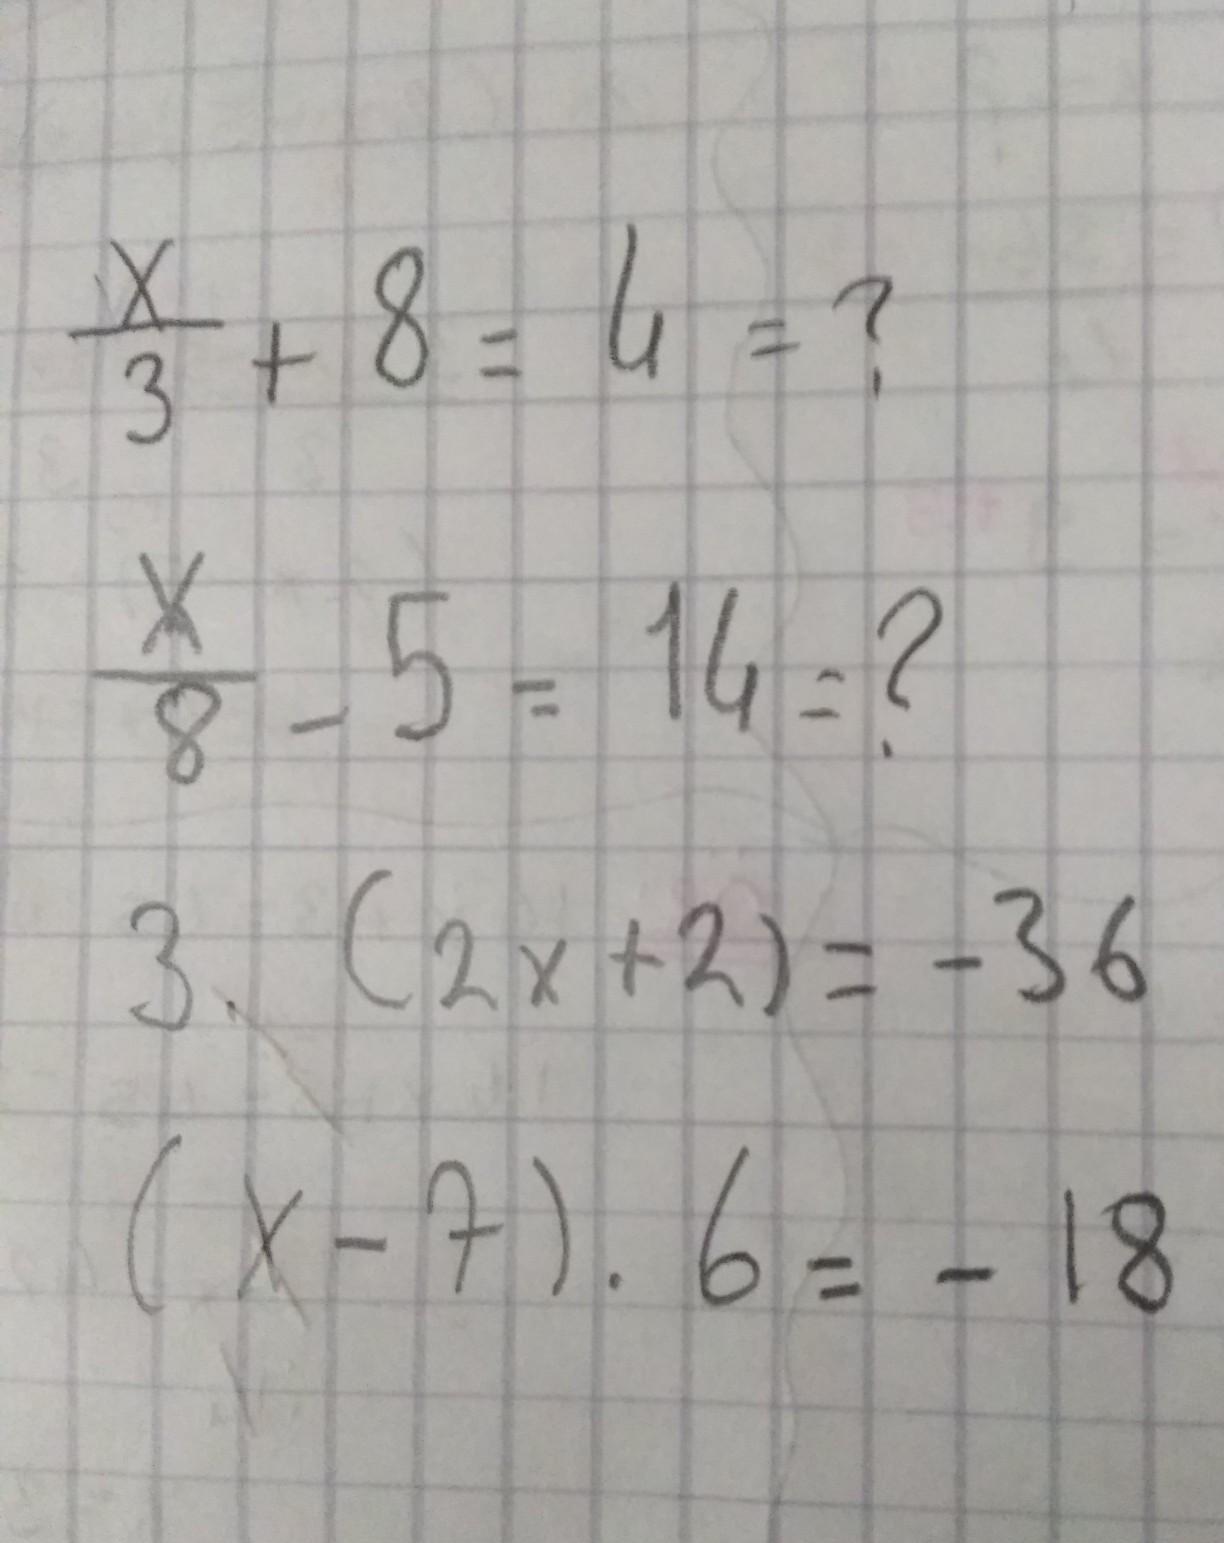 x/3 + 8 = 4 = ?
x/8 - 5 = 14 = ?
3. (2x+2) = -36
(x-7). 6 = -18